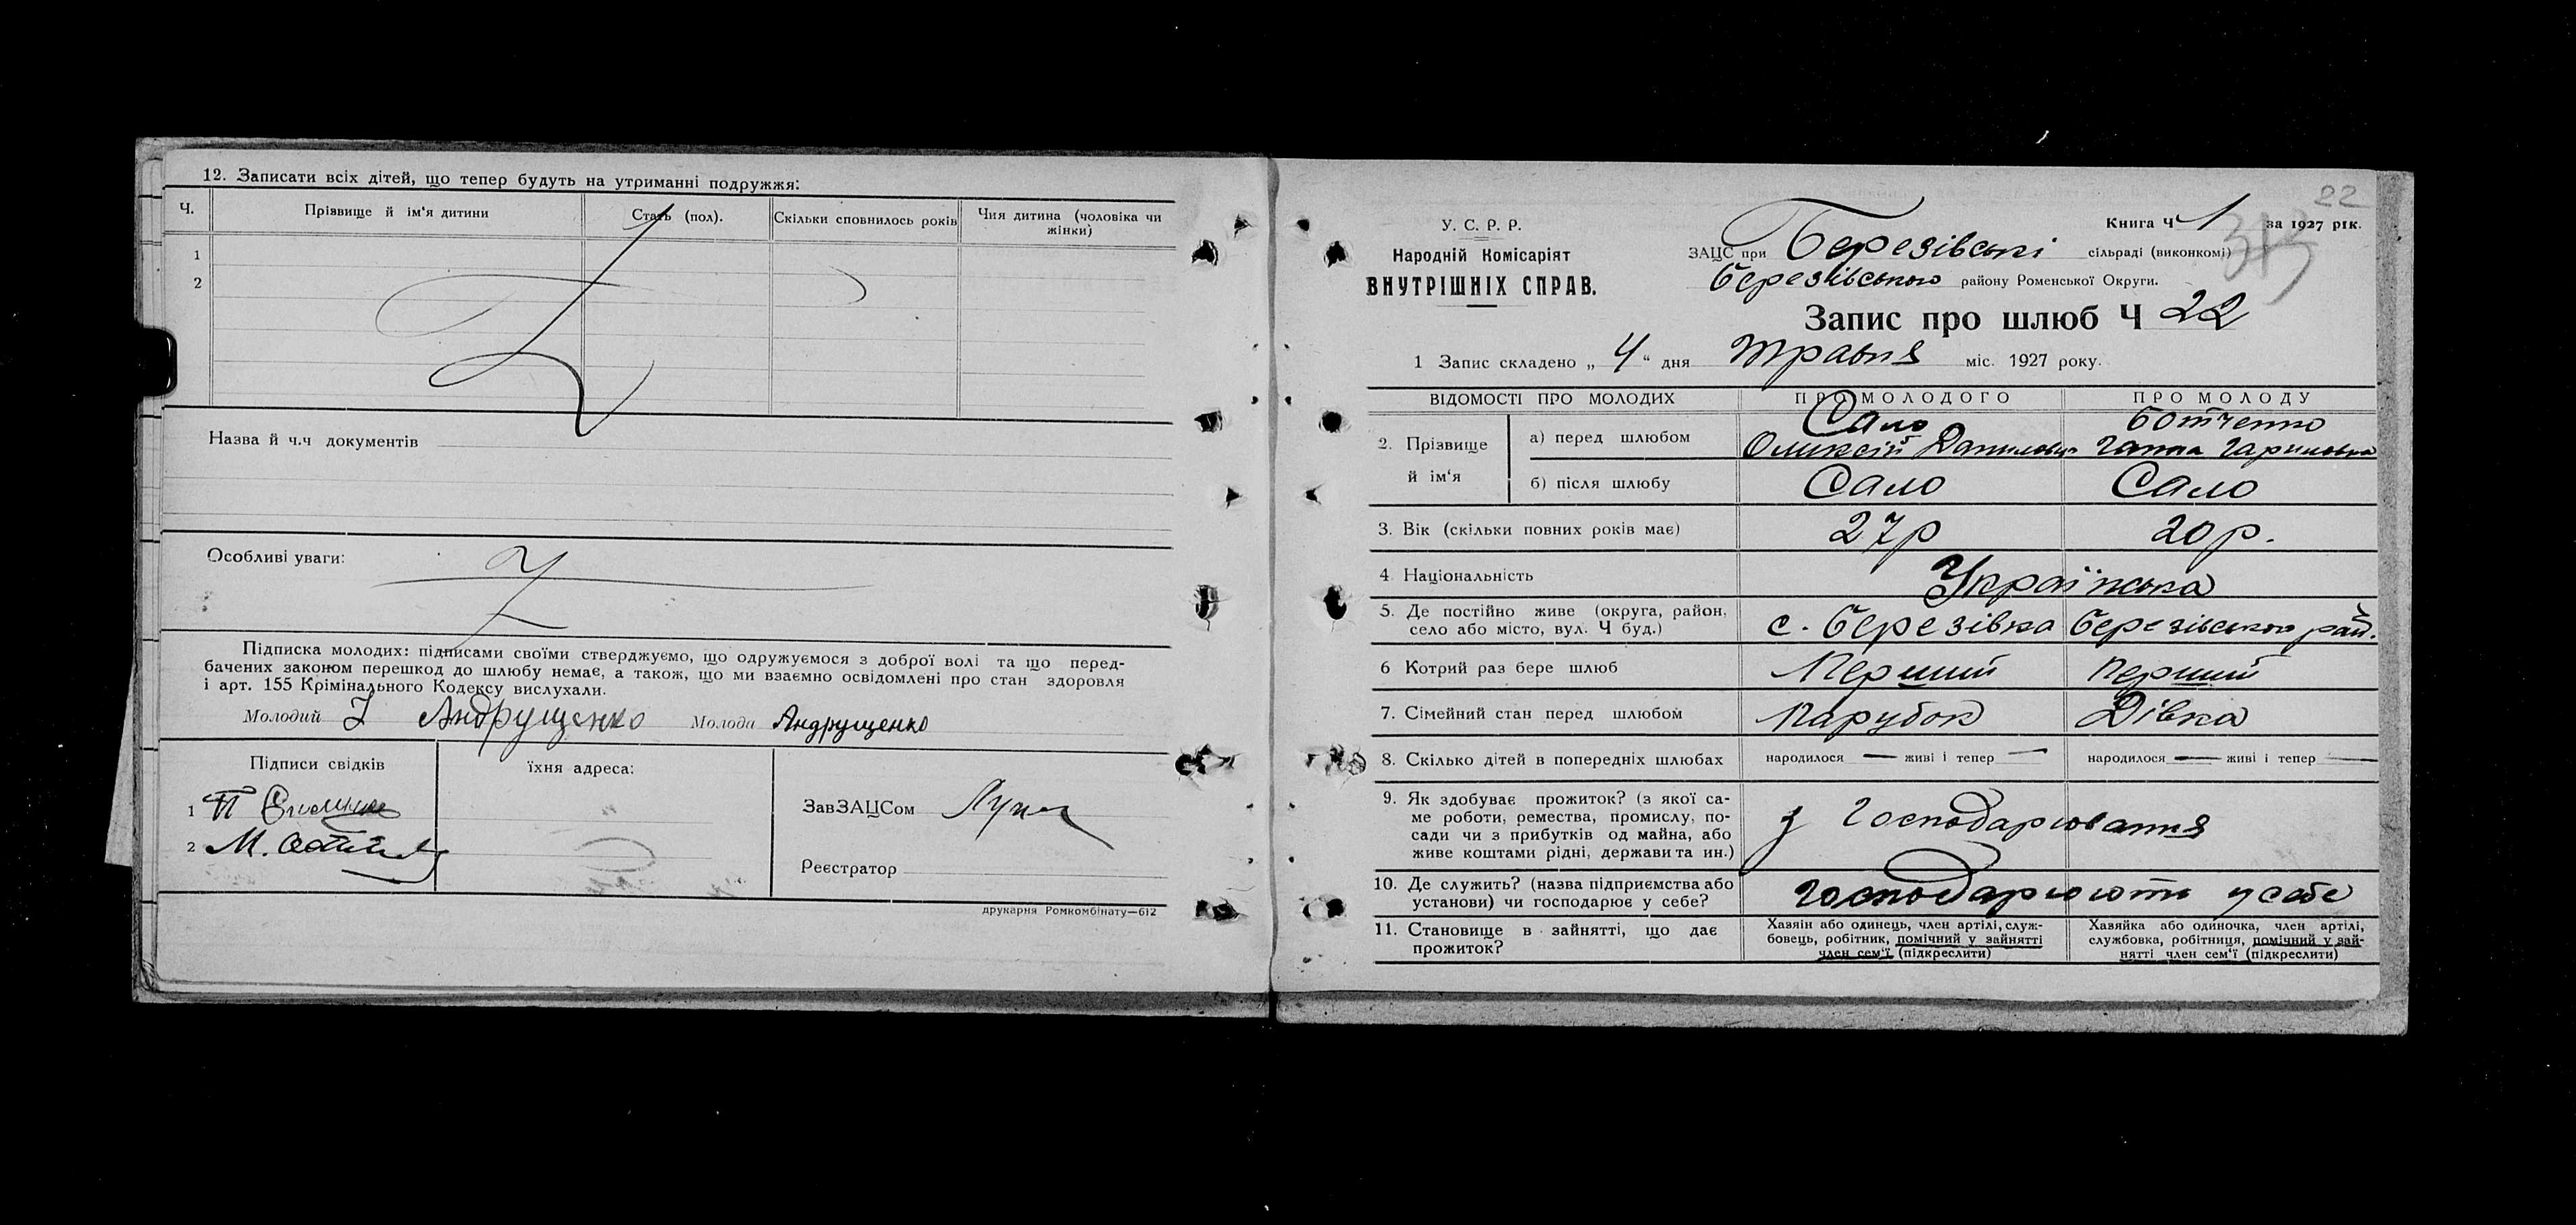 12. Записати всіх дітей, що тепер будуть на утриманні подружжя:
Ч. Прізвище й ім'я дитини Стать (пол). Скільки сповнилось років Чия дитина (чоловіка чи жінки)
1
2
Назва й ч.ч документів
Особливі уваги:
Підписка молодих: підписами своїми стверджуємо, що одружуємося з доброї волі та що перед-
бачених законом перешкод до шлюбу немає, а також, що ми взаємно освідомлені про стан здоровля
і арт. 155 Крімінального Кодексу вислухали.
Молодий Андрущенко Молода Андрущенко
Підписи свідків їхня адреса:
1 П
2 М.
ЗавЗАЦСом
Реєстратор
друкарня Ромкомбінату—612
22
У. С. Р. Р.
Народній Комісаріят
ВНУТРІШНІХ СПРАВ.
Книга Ч 1 за 1927 рік.
313
ЗАЦС при Березівські сільраді (виконкомі)
Березівського району Роменської Округи.
Запис про шлюб Ч 22
1 Запис складено „ 4 “ дня травня міс. 1927 року.
ВІДОМОСТІ ПРО МОЛОДИХ ПРО МОЛОДОГО ПРО МОЛОДУ
2. Прізвище й ім'я
а) перед шлюбом Сало Ботченко
Олексій Данилович Ганна
б) після шлюбу Сало Сало
3. Вік (скільки повних років має) 27р 20р.
4 Національність Українська
5. Де постійно живе (округа, район,
село або місто, вул. Ч буд.) с. Березівка Березівського рай.
6 Котрий раз бере шлюб Перший перший
7. Сімейний стан перед шлюбом Парубок Дівка
8. Скілько дітей в попередніх шлюбах народилося — живі і тепер — народилося — живі і тепер —
9. Як здобуває прожиток? (з якої са-
ме роботи, ремества, промислу, по-
сади чи з прибутків од майна, або
живе коштами рідні, держави та ин.) з Господарювання
10. Де служить? (назва підприємства або
установи) чи господарює у себе? господарюють у себе
11. Становище в зайнятті, що дає
прожиток?
Хазяїн або одинець, член артілі, служ-
бовець, робітник, помічний у зайнятті
член сем'ї (підкреслити)
Хазяйка або одиночка, член артілі,
службовка, робітниця, помічний у зай-
нятті член сем'ї (підкреслити)